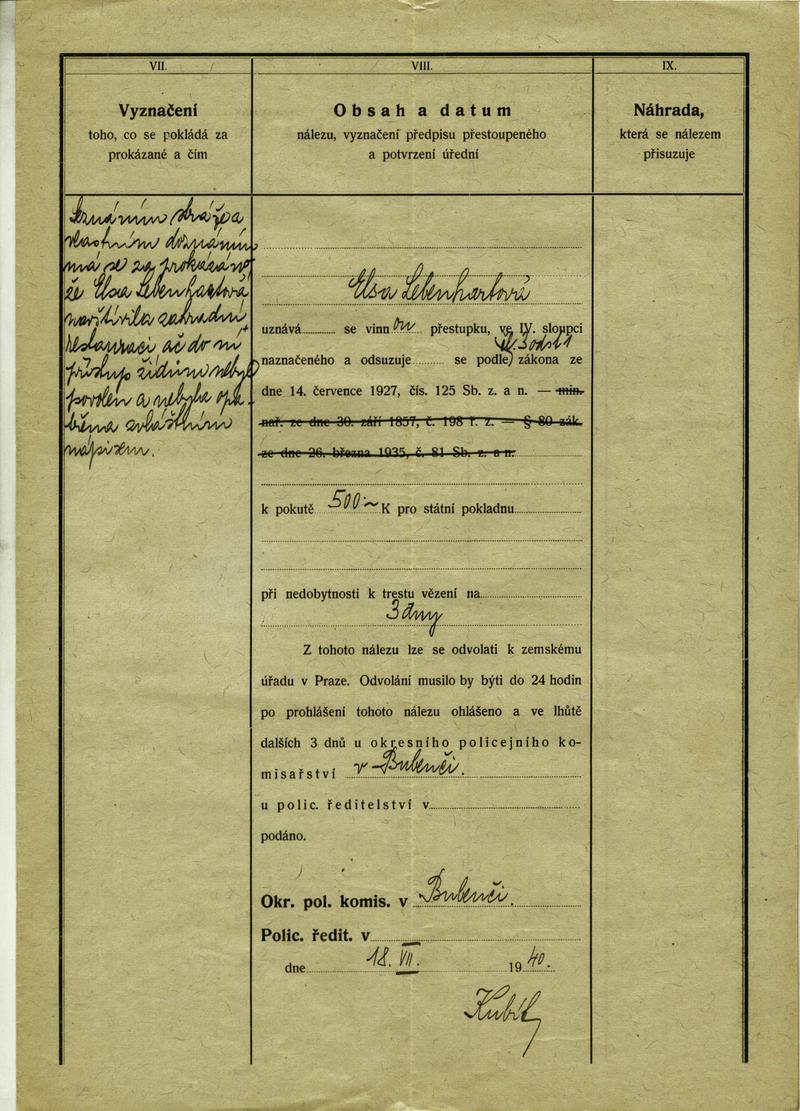 VII.
Vyznačení
toho, co se pokládá za
prokázané a čím
VIII.
Obsah a datum
nálezu, vyznačení předpisu přestoupeného
a potvrzení úřední
IX.
Náhrada,
která se nálezem
přisuzuje
má se za prokázáno
že Elsa Lebenhartová
navštívila zahradní
restauraci, ač do ní
přístup židům nebyl
povolen a nebyla opa
třena zvláštním
nápisem.
Elsa Lebenhartová
uznává se vinnou přestupku, ve IV. sloupci
naznačeného a odsuzuje se podle zákona ze
dne 14. července 1927, čís. 125 Sb. z. a n. — min.
nař. ze dne 30. září 1857, č. 198 ř. z. — § 80 zák.
ze dne 26. března 1935, č. 81 Sb. z. a n.
k pokutě 500·— K pro státní pokladnu
při nedobytnosti k trestu vězení na
3 dny
Z tohoto nálezu lze se odvolati k zemskému
úřadu v Praze. Odvolání musilo by býti do 24 hodin
po prohlášení tohoto nálezu ohlášeno a ve lhůtě
dalších 3 dnů u okresního policejního ko-
misařství v Bubenči.
u polic. ředitelství v
podáno.
Okr. pol. komis. v Bubenči.
Polic. ředit. v
dne 18. VII. 1940.